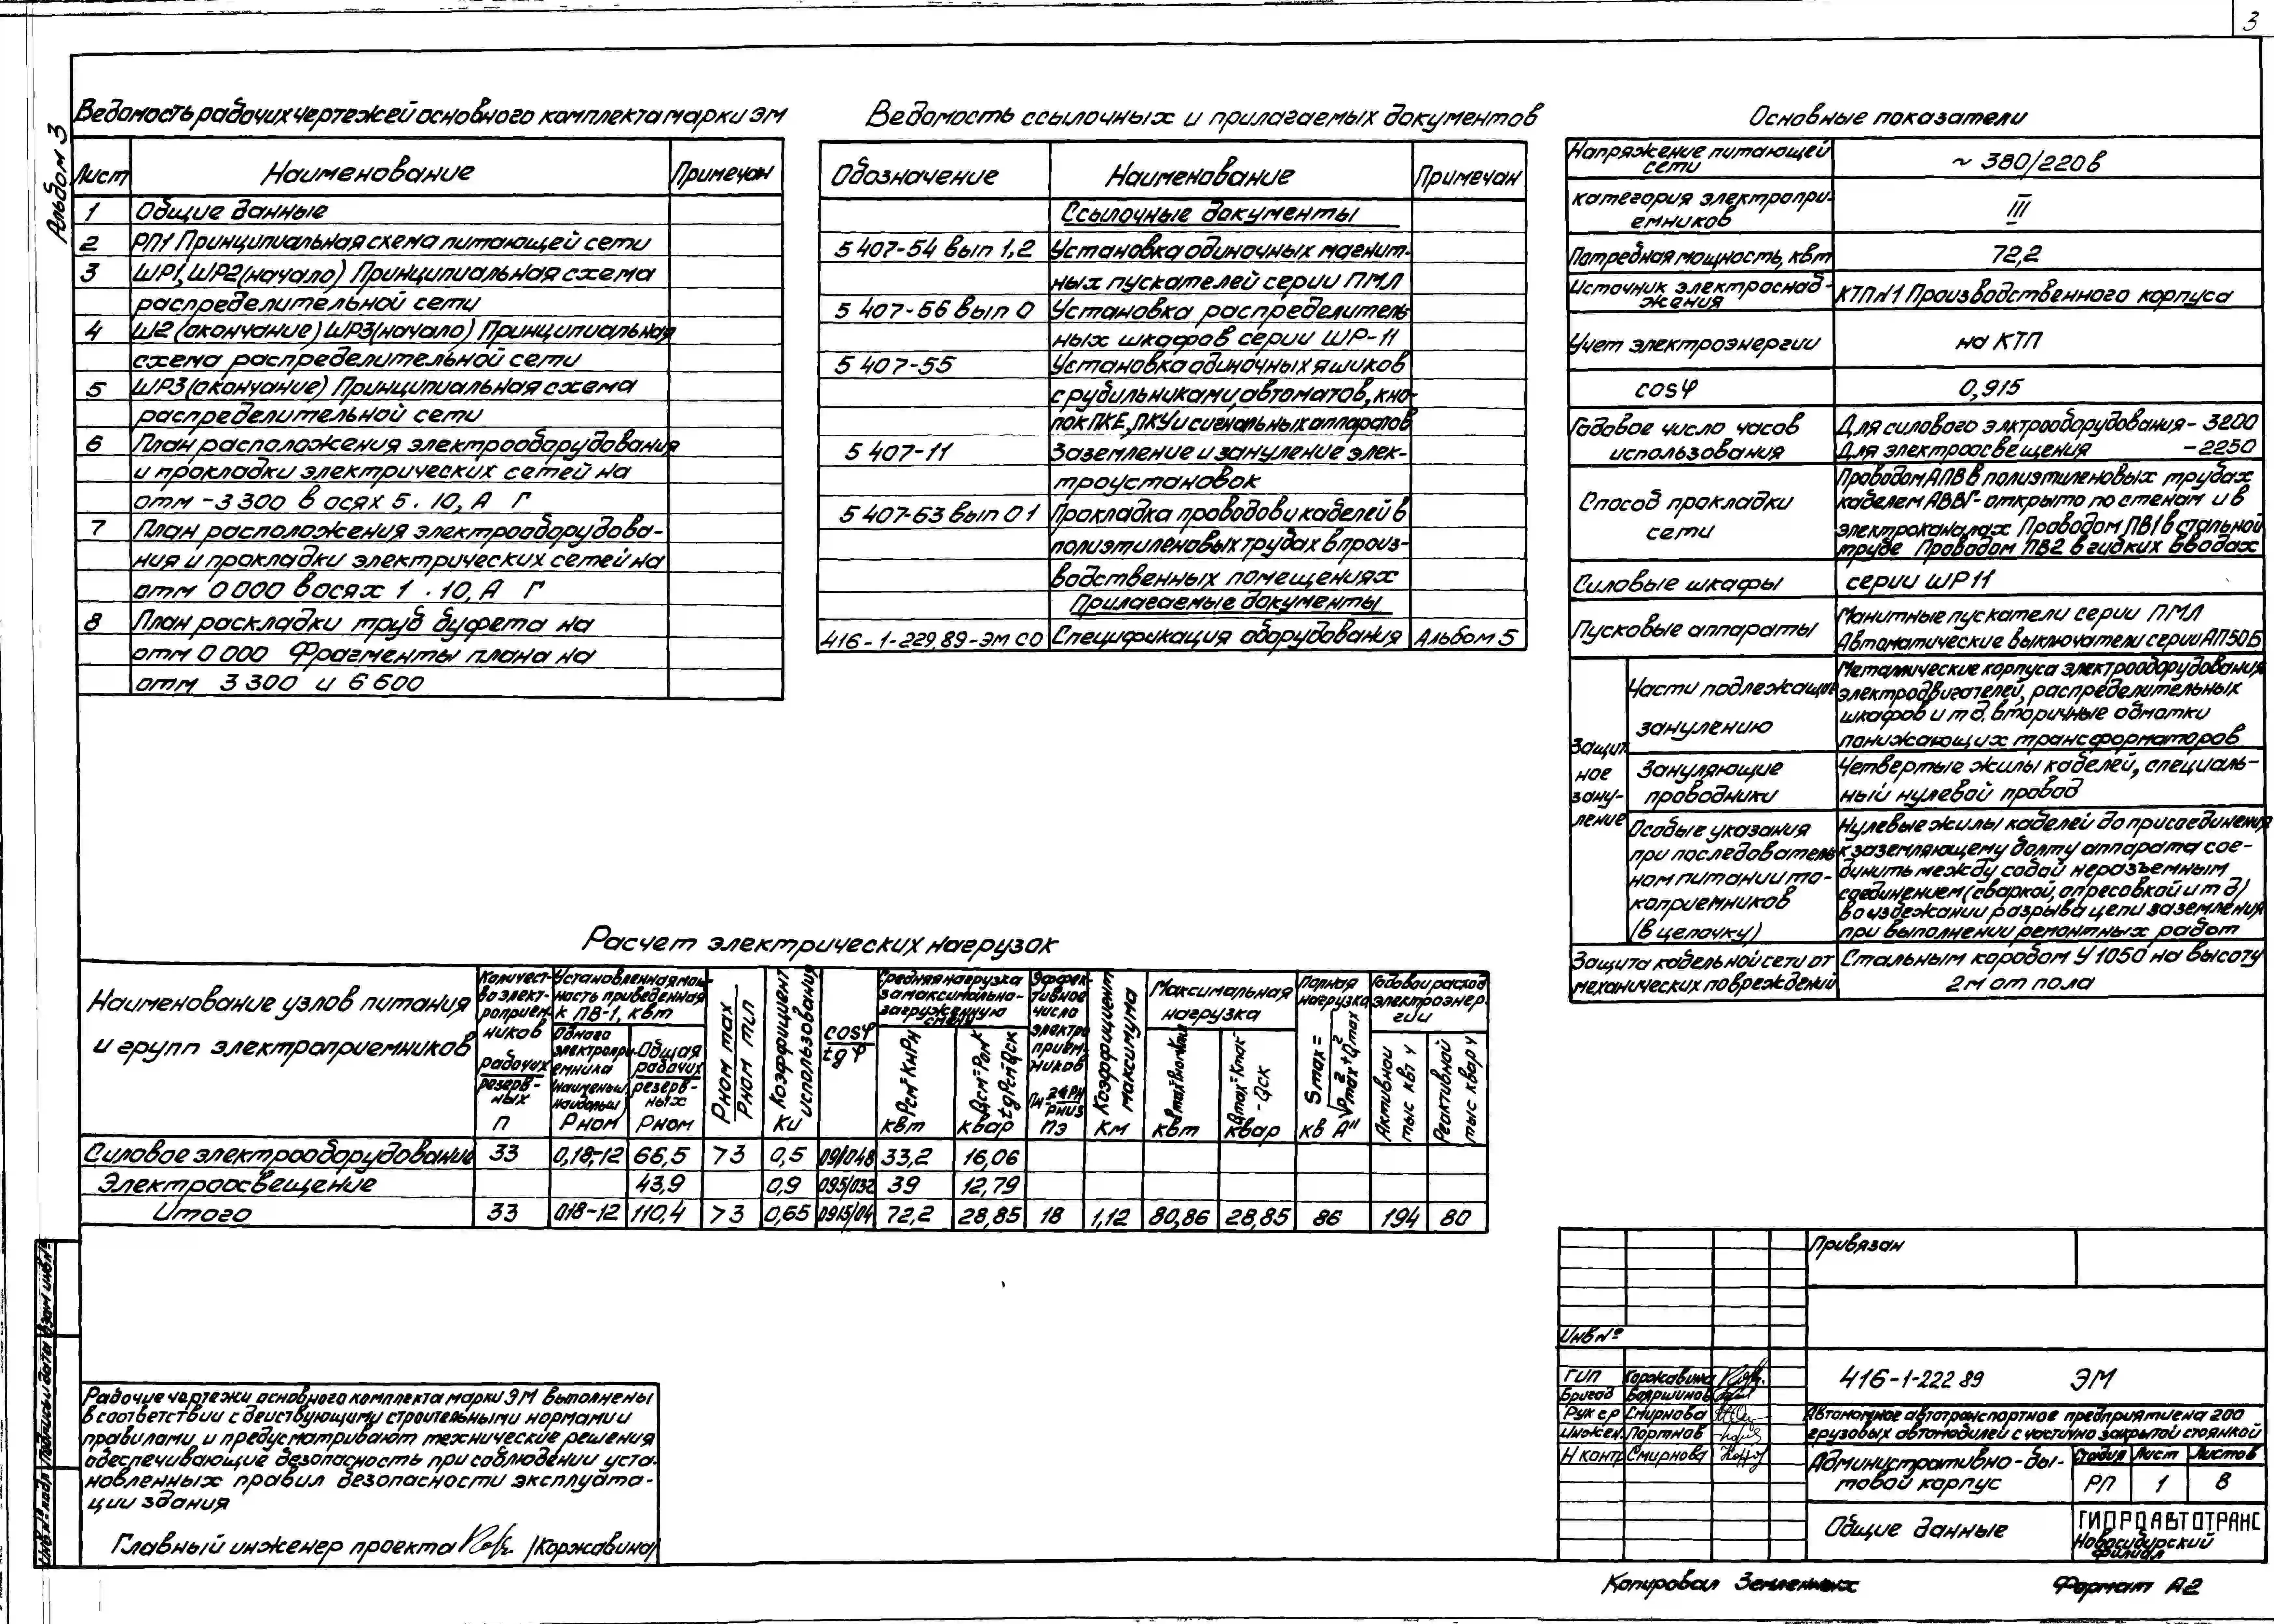 3
Альбом 3
Ведомость рабочих чертежей основного комплекта марки ЭМ
Лист Наименование Примечан
1 Общие данные
2 РП1 Принципиальная схема питающей сети
3 ШР1, ШР2 (начало) Принципиальная схема
распределительной сети
4 Ш2 (окончание) ШР3 (начало) Принципиальная
схема распределительной сети
5 ШР3 (окончание) Принципиальная схема
распределительной сети
6 План расположения электрооборудования
и прокладки электрических сетей на
отм -3 300 в осях 5 . 10, А Г
7 План расположения электрооборудова-
ния и прокладки электрических сетей на
отм 0 000 в осях 1 . 10, А Г
8 План раскладки труб буфета на
отм 0 000 Фрагменты плана на
отм 3 300 и 6 600
Ведомость ссылочных и прилагаемых документов
Обозначение Наименование Примечан
Ссылочные документы
5 407-54 вып 1,2 Установка одиночных магнит-
ных пускателей серии ПМЛ
5 407-56 вып 0 Установка распределитель
ных шкафов серии ШР-11
5 407-55 Установка одиночных ящиков
с рубильниками, автоматов, кно-
пок ПКЕ, ПКУ и сигнальных аппаратов
5 407-11 Заземление и зануление элек-
троустановок
5 407-63 вып 0 1 Прокладка проводов и кабелей в
полиэтиленовых трубах в произ-
водственных помещениях
Прилагаемые документы
416-1-229.89-ЭМ СО Спецификация оборудования Альбом 5
Основные показатели
Напряжение питающей
сети
~ 380/220 в
категория электропри-
емников
III
Потребная мощность, квт 72,2
Источник электроснаб-
жения
КТП N1 Производственного корпуса
Учет электроэнергии на КТП
cosφ 0,915
Годовое число часов
использования
Для силового элктрооборудования - 3200
Для электроосвещения - 2250
Способ прокладки
сети
Проводом АПВ в полиэтиленовых трубах
кабелем АВВГ - открыто по стенам и в
электроканалах Проводом ПВ1 в стальной
трубе Проводом ПВ2 в гибких вводах
Силовые шкафы серии ШР11
Пусковые аппараты
Манитные пускатели серии ПМЛ
Автоматические выключатели серии АП50Б
Защит
ное
зану-
ление
Части подлежащие
занулению
Металлические корпуса электрооборудования
электродвигателей, распределительных
шкафов и т д. вторичные обмотки
понижающих трансформаторов
Зануляющие
проводники
Четвертые жилы кабелей, специаль-
ный нулевой провод
Особые указания
при последователь
ном питании то-
коприемников
(в цепочку)
Нулевые жилы кабелей до присоединения
к заземляющему болту аппарата сое-
динить между собой неразъемным
соединением (сваркой, опресовкой и т д)
во избежании разрыва цепи заземления
при выполнении ремонтных работ
Защита кабельной сети от
механических повреждений
Стальным коробом У 1050 на высоту
2 м от пола
Расчет электрических нагрузок
Наименование узлов питания
и групп электроприемников
Количест-
во элект-
роприем-
ников
рабочих
резерв-
ных
п
Установленная мощ-
ность приведенная
к ПВ-1, квт
Одного
электропри-
емника
наименьш
наибольш
Рном
Общая
рабочих
резерв-
ных
Рном
Рном max
Рном min
Коэффициент
использования
Ки
cosφ
tgφ
Средняя нагрузка
за максимально-
загруженную
смену
Рсм=КиРн
квт
квар
Эффек-
тивное
число
электро
прием-
ников
пэ
Коэффициент
максимума
Км
Максимальная
нагрузка
квт
Qmax=Kmax
-Qск
квар
Полная
нагрузка
Smax=
√P²max+Q²max
кв А"
Годовой расход
электроэнер-
гии
Активной
тыс квт ч
Реактивной
тыс квар ч
Силовое электрооборудование 33 0,18-12 66,5 >3 0,5 09/048 33,2 16,06
Электроосвещение 43,9 0,9 095/032 39 12,79
Итого 33 018-12 110,4 >3 0,65 0915/04 72,2 28,85 18 1,12 80,86 28,85 86 194 80
Рабочие чертежи основного комплекта марки ЭМ выполнены
в соответствии с действующими строительными нормами и
правилами и предусматривают технические решения
обеспечивающие безопасность при соблюдении уста-
новленных правил безопасности эксплуата-
ции здания
Главный инженер проекта /Коржавина/
Инв N° подл Подпись и дата Взам инв N°
Привязан
Инв N°
ГИП Коржавина
Бригад Бояршинов
Рук гр Смирнова
Инжен. Портнов
Н контр Смирнова
416-1-222 89 ЭМ
Автономное автотранспортное предприятие на 200
грузовых автомобилей с частично закрытой стоянкой
Административно-бы-
товой корпус
Стадия Лист Листов
РП 1 8
Общие данные
ГИПРОАВТОТРАНС
Новосибирский
филиал
Копировал
Формат А2